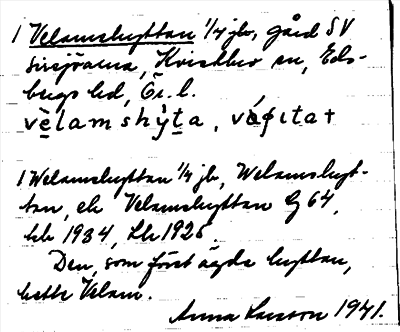 1 Velamshyttan 1/4 jb, gård SV
Sirsjöarna, Kvistbro sn, Eds-
bergs hd, Ör. l.
vèlamshy̆ta, 
1 Welamshyttan 1/4 jb, Welamshyt-
tan, el. Velamshyttan G 64,
hb 1934, Lk 1925
Den, som först ägde hyttan,
hette Velam.
Anna Larsson 1941.